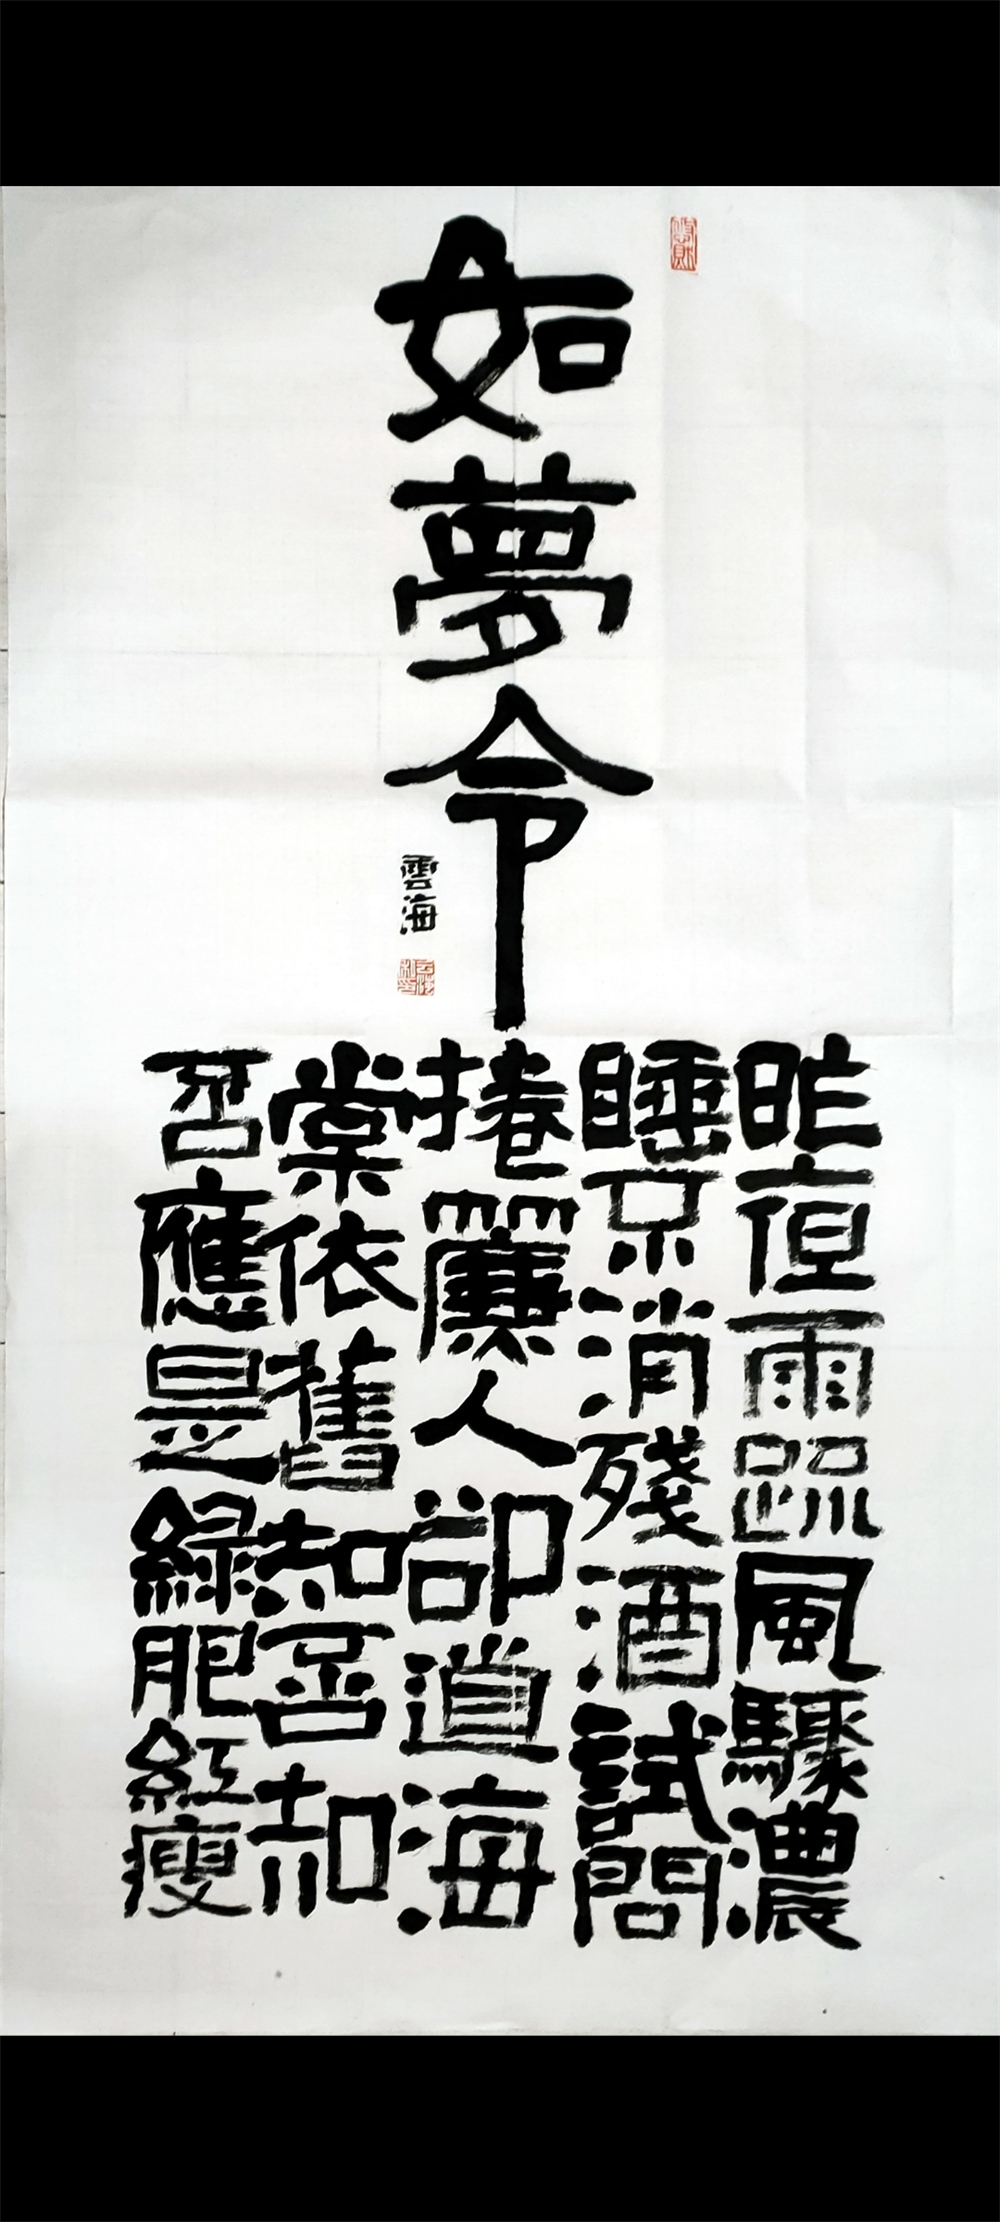 如夢令
雲海
昨夜雨疏風驟濃
睡不消殘酒試問
捲簾人卻道海
棠依舊知否知
否應是綠肥紅瘦